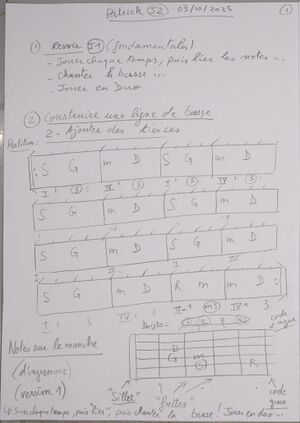 Patrick J2 03/10/2025 1
① Revoir J1 (fondamentales)
- Jouer chaque temps, puis lier les notes...
- Chanter la basse ...
- Jouer en Duo
② Construire une ligne de basse
2 - Ajouter des tierces
Partition:
S G m D S G m D
I 3 IV 3 I 3 IV 3
S G m D S G m D
IV
S G m D S G m D
I I IV
S G m D R m m D
I 3 IV 3 m3 IV 3
Doigts: 1 2 3 4
Notes sur le manche
(diagramme)
(version 1)
corde aigue
D
G m
R
"Sillet" "frettes" corde grave
↳ Jouer chaque temps, puis "lier", puis chanter la basse! Jouer en duo...